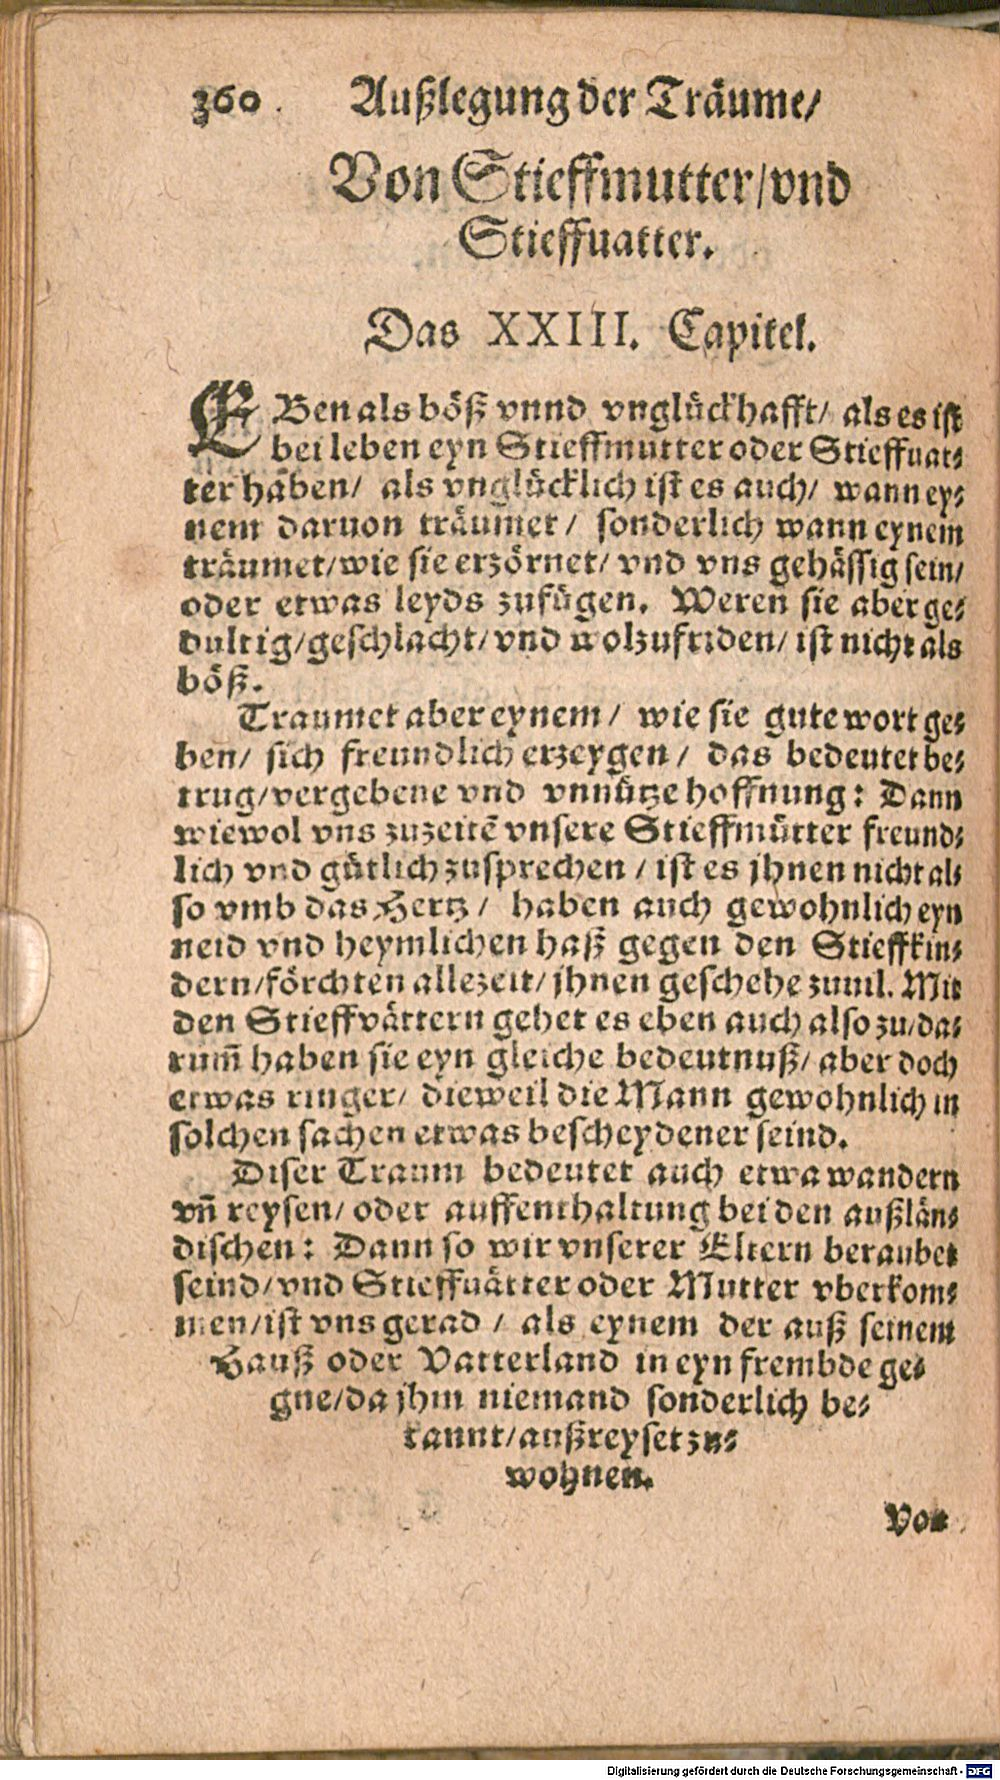 360 Außlegung der Träume/
Von Stieffmutter/vnd
Stieffuatter.
Das XXIII. Capitel.
EBen als böß vnnd vnglückhafft/ als es ist
bei leben eyn Stieffmutter oder Stieffuat⸗
ter haben/ als vnglücklich ist es auch/ wann ey⸗
nem daruon träumet/ sonderlich wann eynem
träumet/wie sie erzörnet/ vnd vns gehässig sein/
oder etwas leyds zufügen. Weren sie aber ge⸗
dultig/geschlacht/vnd wolzufriden/ ist nicht als
böß.
Traumet aber eynem/ wie sie gute wort ge⸗
ben/ sich freundlich erzeygen/ das bedeutet be⸗
trug/vergebene vnd vnnütze hoffnung: Dann
wiewol vns zuzeitẽ vnsere Stieffmütter freund⸗
lich vnd gütlich zusprechen/ ist es jhnen nicht al⸗
so vmb das Hertz/ haben auch gewohnlich eyn
neid vnd heymlichen haß gegen den Stieffkin⸗
dern/förchten allezeit/jhnen geschehe zuuil. Mit
den Stieffvättern gehet es eben auch also zu/da⸗
rum̃ haben sie eyn gleiche bedeutnuß/ aber doch
etwas ringer/ dieweil die Mann gewohnlich in
solchen sachen etwas bescheydener seind.
Diser Traum bedeutet auch etwa wandern
vñ reysen/ oder auffenthaltung bei den außlän⸗
dischen: Dann so wir vnserer Eltern beraubet
seind/vnd Stieffuätter oder Mutter vberkom⸗
men/ist vns gerad/ als eynem der auß seinem
Hauß oder Vatterland in eyn frembde ge⸗
gne/da jhm niemand sonderlich be⸗
kannt/außreyset zu⸗
wohnen.
Von
Digitalisierung gefördert durch die Deutsche Forschungsgemeinschaft - DFG